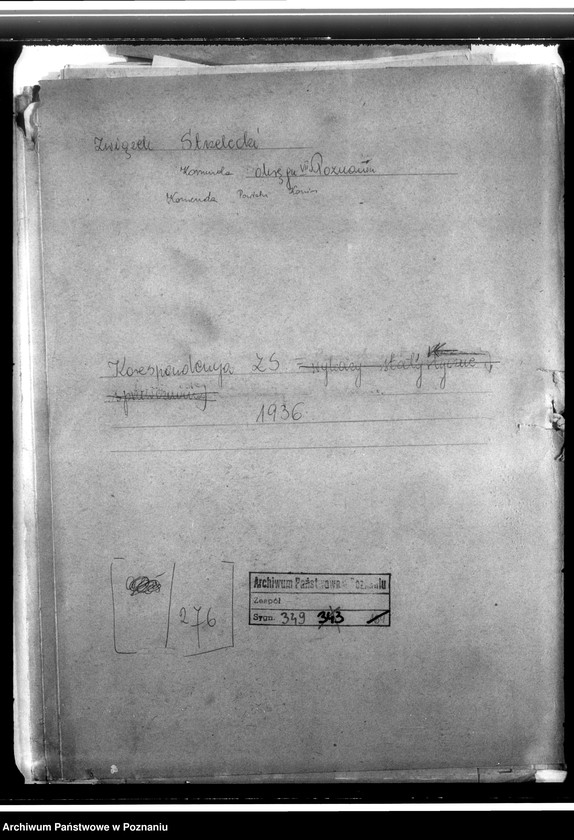 Związek Strzelecki
Komenda Okręgu VII Poznań
Komenda Powiatu Konin
Korespondencja ZS – wykazy statystyczne,
sprawozdania
1936
276
Archiwum Państwowe w Poznaniu
Zespół
Sygn. 349 343
Archiwum Państwowe w Poznaniu